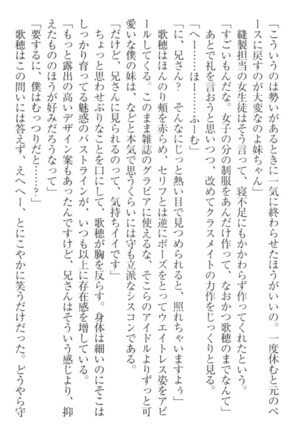 「こういうのは勢いがあるときに一気に終わらせたほうがいいの。一度休むと元のペ
ースに戻すのが大変なのよ妹ちゃん」
縫製担当の女生徒はそう言って、寝不足にもかかわらず作ってくれたという。
「すごいもんだな。女子の分の制服をあんだけ作って、なおかつ歌穂のまでなんて」
あとで礼を言おうと思いつつ、改めてクラスメイトの力作をじっくり見る。
「へー……ほー……ふーむ」
「に、兄さん？　そんなにじっと熱い目で見つめられると、照れちゃいますよぅ」
歌穂はほんのり頬を赤らめ、セリフとは逆にポーズをとってウエイトレス姿をアピ
ールしてくる。このまま雑誌のグラビアに使えるな、そこらのアイドルよりずっと可
愛いな僕の妹は、などと本気で思うくらいには守も立派なシスコンである。
「だけど、兄さんに見られるのって、気持ちイイです」
ちょっと思わせぶりなことを口にして、歌穂が胸を反らす。身体は細いのにそこは
しっかり育ってる魅惑のバストラインが、いつも以上に存在感を増している。
「もっと露出の高いデザイン案もあったんですけど、兄さんはそういう感じより、抑
えたもののほうが好みだろうなって」
「要するに、僕はむっつりだと……？」
歌穂はこの問いには答えず、えへへー、とにこやかに笑うだけだった。どうやら守